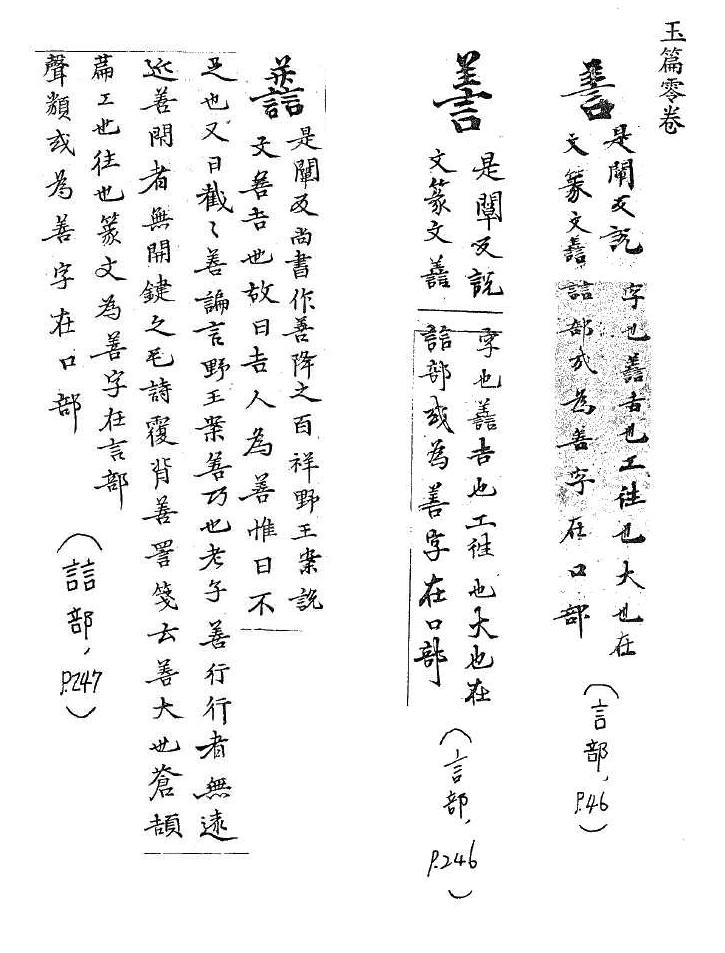 玉篇零卷
善
是闡反說字也譱吉也工往也大也在
文篆文譱誩部或為善字在口部
(言部, P.46)
善
是闡反說字也譱吉也工往也大也在
文篆文譱誩部或為善字在口部
(言部, P.246)
譱
是闡反尚書作善降之百祥野王案說
文善吉也故曰吉人為善惟日不
足也又曰截〻善諞言野王案善巧也老子善行行者無遠
近善閇者無開鍵之毛詩覆背善詈箋云善大也蒼頡
篇工也往也篆文為善字在言部
聲類或為善字在口部
(誩部, P.247)